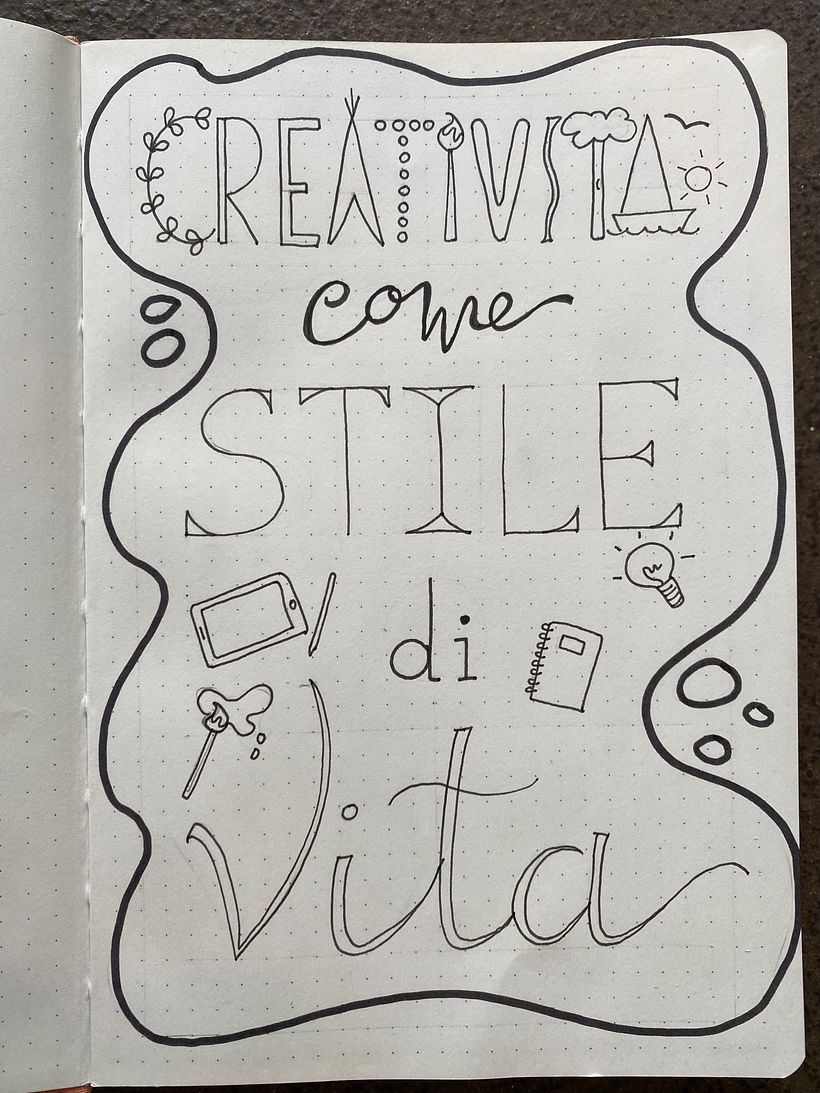 CREATIVITÀ
come
STILE
di
Vita